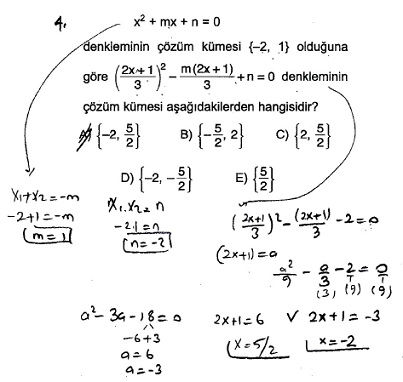 4. x² + mx + n = 0
denkleminin çözüm kümesi {–2, 1} olduğuna
göre ((2x+1)/3)² – m(2x+1)/3 + n = 0 denkleminin
çözüm kümesi aşağıdakilerden hangisidir?
A) {–2, 5/2} B) {–5/2, 2} C) {2, 5/2}
D) {–2, –5/2} E) {5/2}
x₁+x₂=-m
-2+1=-m
m=1
x₁.x₂=n
-2.1=n
n=-2
((2x+1)/3)² - (2x+1)/3 - 2=0
(2x+1)=a
a²/9 - a/3 - 2 = 0/1
(3) (9) (9)
a² - 3a - 18 = 0
-6+3
a=6
a=-3
2x+1=6 ∨ 2x+1=-3
x=5/2 x=-2